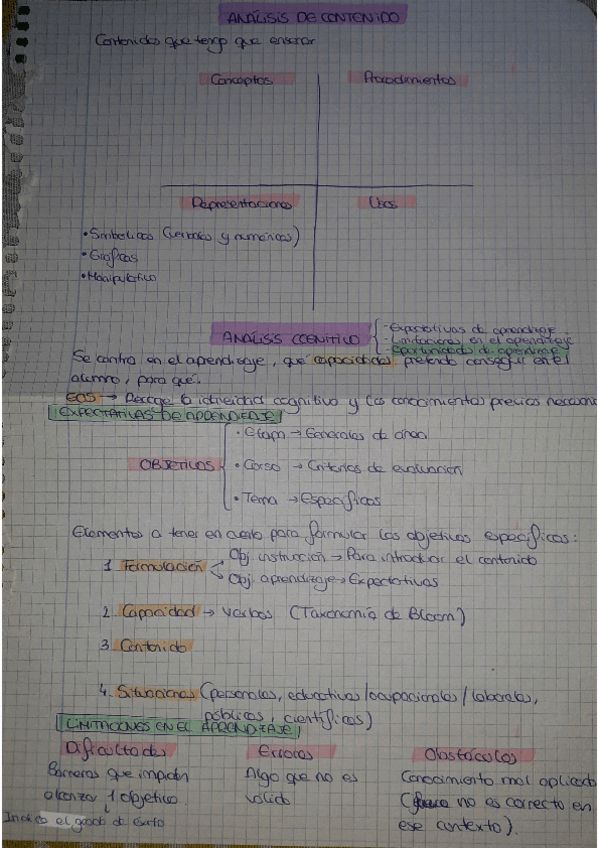 ANÁLISIS DE CONTENIDO
Contenidos que tengo que enseñar
Conceptos
Procedimientos
Representaciones
Usos
• Simbólicas (verbales y numéricas)
• Gráficas
• Manipulativo
ANÁLISIS COGNITIVO
- Expectativas de aprendizaje
- Limitaciones en el aprendizaje
- Oportunidades de aprendizaje
Se centra en el aprendizaje, qué capacidades pretendo conseguir en el
alumno, para qué.
EOS → Recoge la idoneidad cognitiva y los conocimientos previos necesarios
EXPECTATIVAS DE APRENDIZAJE
OBJETIVOS
• Etapa → Generales de área
• Curso → Criterios de evaluación
• Tema → Específicos
Elementos a tener en cuenta para formular los objetivos específicos:
1. Formulación
Obj. instrucción → Para introducir el contenido
Obj. aprendizaje → Expectativas
2. Capacidad → Verbos (Taxonomía de Bloom)
3. Contenido
4. Situaciones (personales, educativas/ocupacionales/laborales,
públicas, científicas)
LIMITACIONES EN EL APRENDIZAJE
Dificultades
Barreras que impiden
alcanzar 1 objetivo
↓
Indica el grado de éxito
Errores
Algo que no es
válido
Obstáculos
Conocimiento mal aplicado
( no es correcto en
ese contexto).